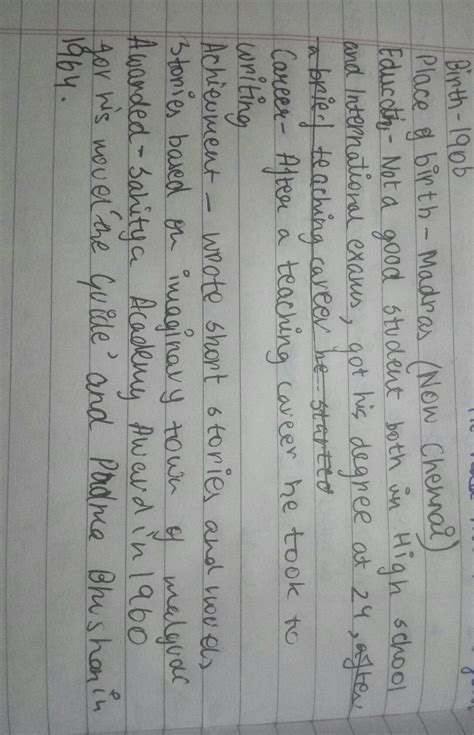 Birth - 1906
Place of birth - Madras (Now Chennai)
Education - Not a good student both in High school
and International exams, got his degree at 24, after
a brief teaching career he started
Career - After a teaching career he took to
writing
Achievment - wrote short stories and novels,
stories based on imaginary town of malgudi
Awarded - Sahitya Academy Award in 1960
for his novel 'the Guide' and Padma Bhushan in
1964.